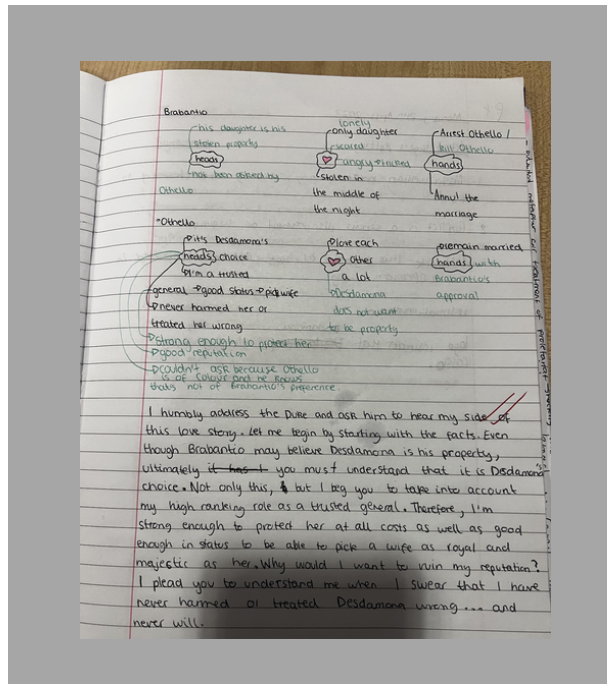 Brabantio
his daughter is his
stolen property
heads
not been asked by
Othello
lonely
only daughter
scared
angry
stolen in
the middle of
the night
Arrest Othello /
kill Othello
hands
Annul the
marriage
Othello
it's Desdamona's
heads choice
I'm a trusted
general → good status → pick wife
never harmed her or
treated her wrong
strong enough to protect her
good reputation
couldn't ask because Othello
is of colour and he knows
thats not of Brabantio's preference.
love each
other
a lot
Desdamona
does not want
to be property
remain married
hands with
Brabantio's
approval
I humbly address the Duke and ask him to hear my side of
this love story. Let me begin by starting with the facts. Even
though Brabantio may believe Desdamona is his property,
ultimately it has you must understand that it is Desdamona
choice. Not only this, but I beg you to take into account
my high ranking role as a trusted general. Therefore, I'm
strong enough to protect her at all costs as well as good
enough in status to be able to pick a wife as royal and
majestic as her. Why would I want to ruin my reputation?
I plead you to understand me when I swear that I have
never harmed or treated Desdamona wrong... and
never will.